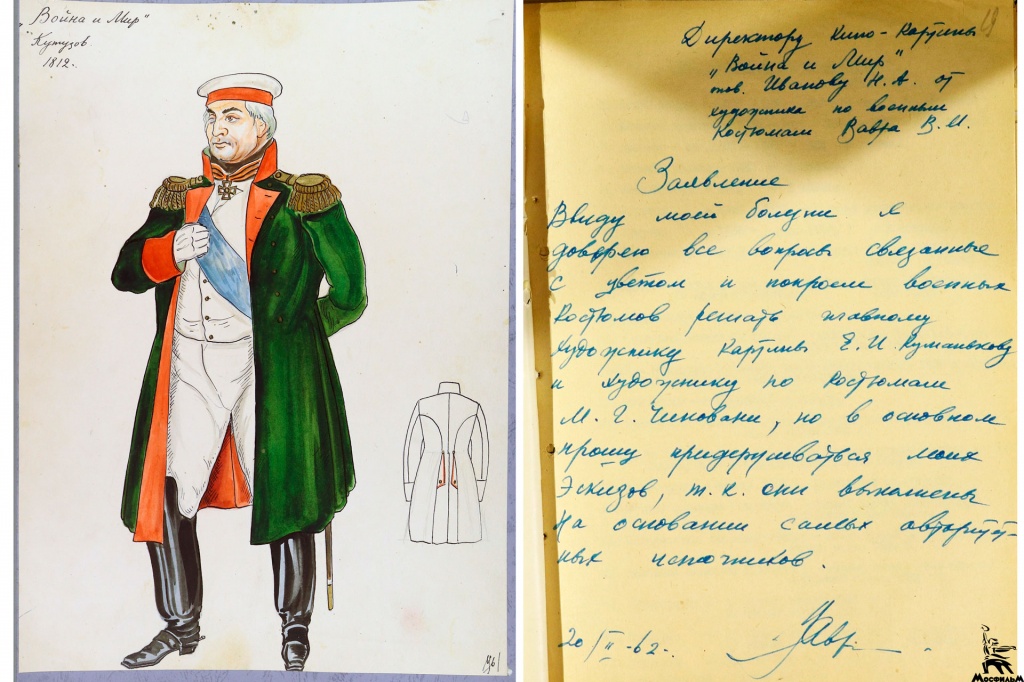 „Война и Мир"
Кутузов
1812г.
Директору кино-картины
„Война и Мир"
тов. Иванову Н.А. от
художника по военным
костюмам Вавра В.И.
Заявление
Ввиду моей болезни я
доверяю все вопросы связанные
с цветом и покроем военных
костюмов решать главному
художнику картины Е.И. Куманькову
и художнику по костюмам
М.Г. Чиковани, но в основном
прошу придерживаться моих
Эскизов, т.к. они выполнены
на основании самых авторитет-
ных источников.
20/II-62.
Вавр
19
МОСФИЛЬМ